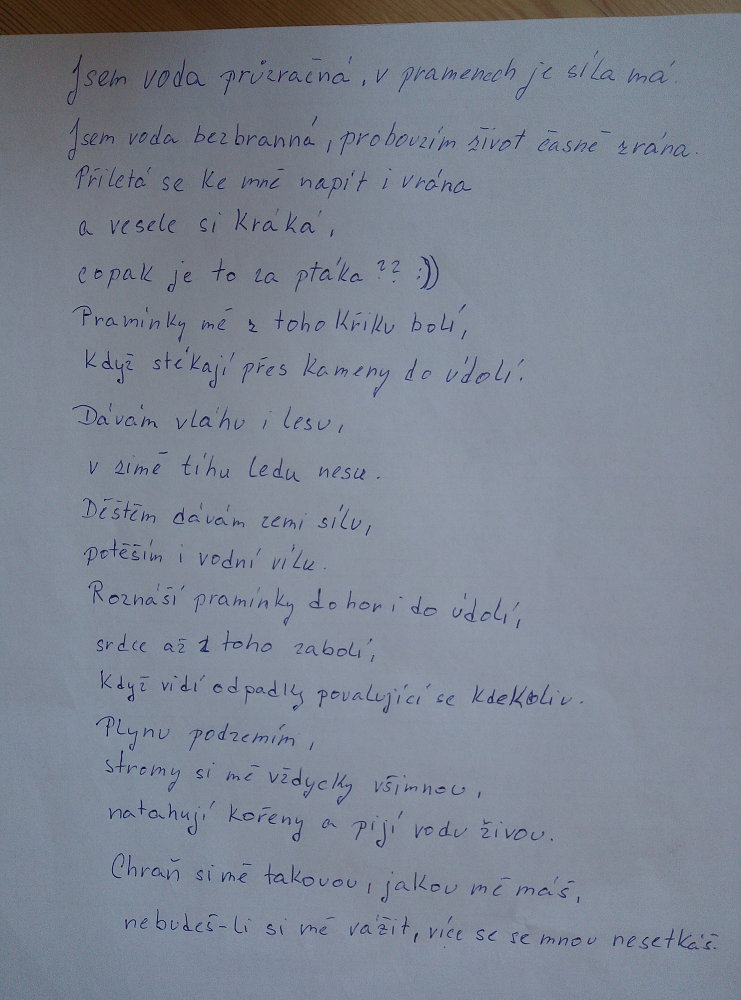 Jsem voda průzračná, v pramenech je síla má.
Jsem voda bezbranná, probouzím život časně zrána.
Přilétá se ke mně napít i vrána
a vesele si kráká,
copak je to za ptáka?? :))
Pramínky mé z toho křiku bolí,
když stékají přes kameny do údolí.
Dávám vláhu i lesu,
v zimě tíhu ledu nesu.
Deštěm dávám zemi sílu,
potěším i vodní vílu.
Roznáší pramínky do hor i do údolí,
srdce až z toho zabolí,
když vidí odpadky povalující se kdekoliv.
Plynu podzemím,
stromy si mě vždycky všimnou,
natahují kořeny a pijí vodu živou.
Chraň si mě takovou, jakou mě máš,
nebudeš-li si mě vážit, více se se mnou nesetkáš.